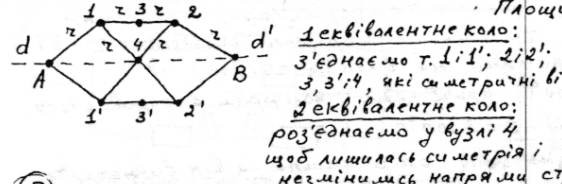 Площи
1 r 3 r 2
r r 4 r r
d A B d'
1' 3' 2'
1 еквівалентне коло:
з'єднаємо т. 1 і 1'; 2 і 2';
3, 3' і 4, які симетричні ві
2 еквівалентне коло:
роз'єднаємо у вузлі 4
щоб лишилась симетрія і
незмінились напрями ст